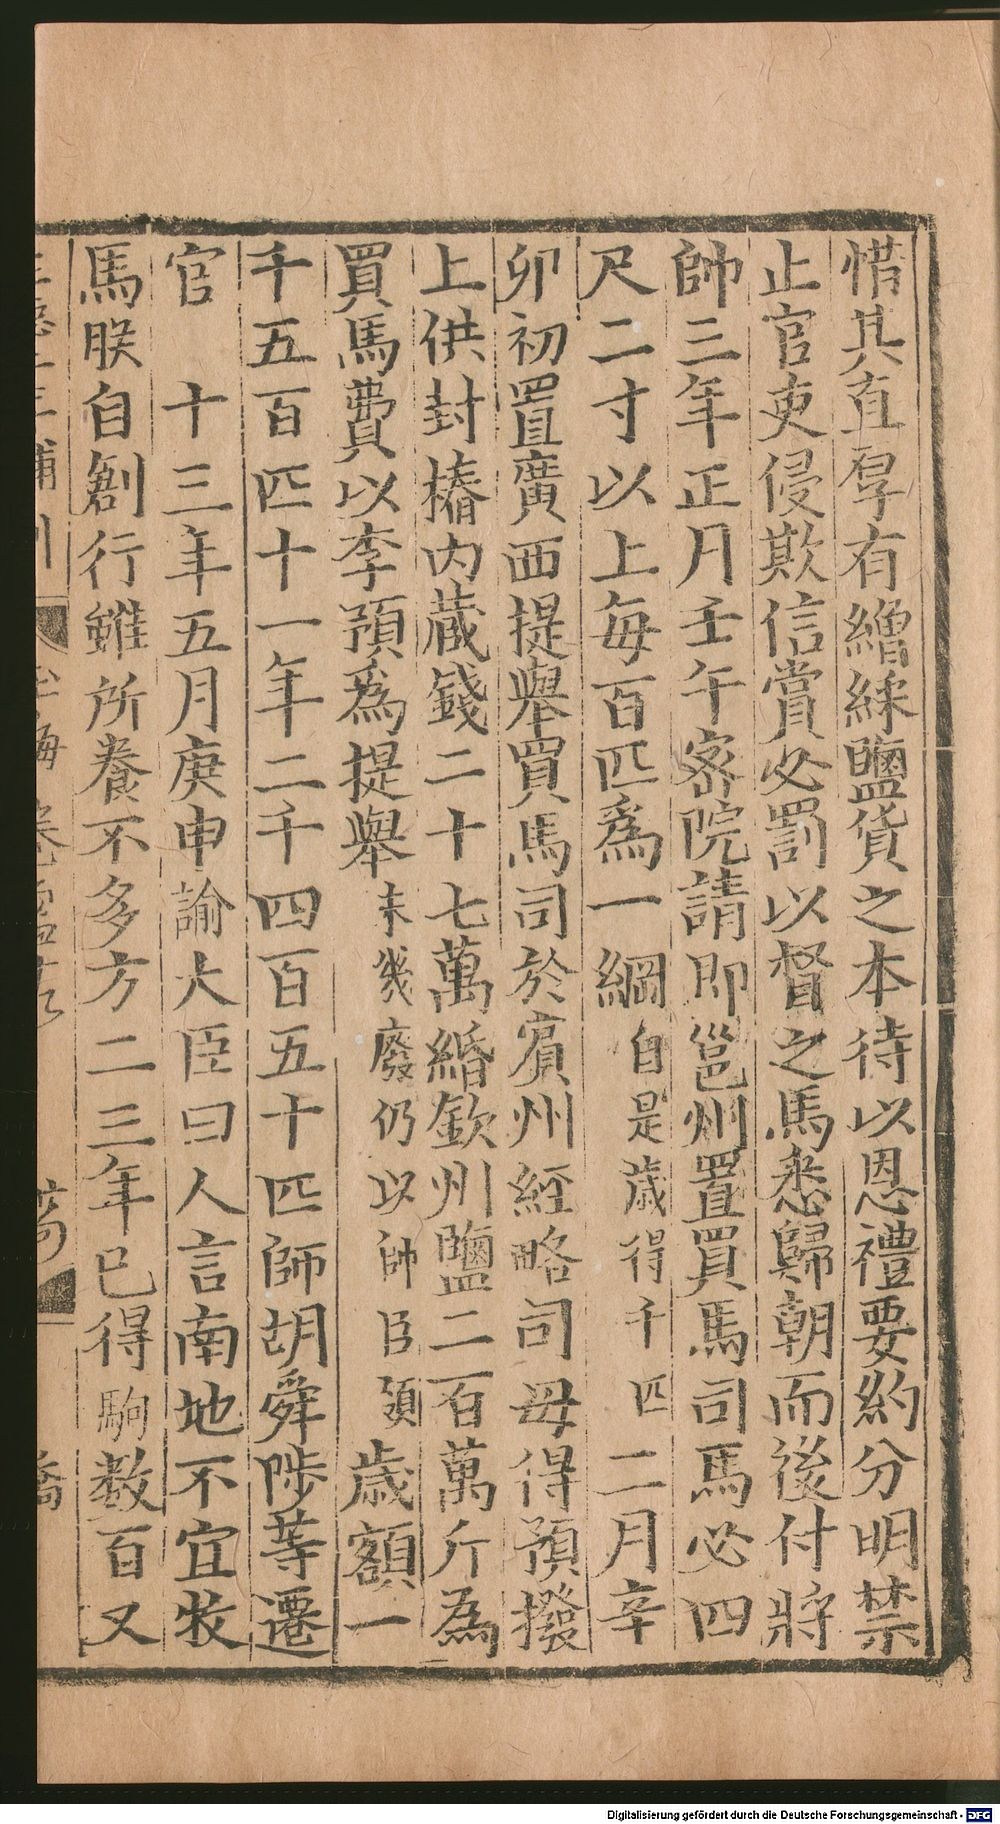 惜其直厚有繒綵鹽貨之本待以恩禮要約分明禁
止官吏侵欺信賞必罰以督之馬悉歸朝而後付將
帥三年正月壬午密院請即邕州置買馬司馬必四
尺二寸以上每百匹爲一綱自是歲得千匹二月辛
卯初置廣西提舉買馬司於賓州經略司毋得預撥
上供封樁内藏錢二十七萬緡欽州鹽二百萬斤為
買馬費以李預爲提舉未幾廢仍以帥臣領歲額一
千五百匹十一年二千四百五十匹師胡舜陟等遷
官 十三年五月庚申諭大臣曰人言南地不宜牧
馬朕自創行雖所養不多方二三年已得駒數百又
Digitalisierung gefördert durch die Deutsche Forschungsgemeinschaft - DFG